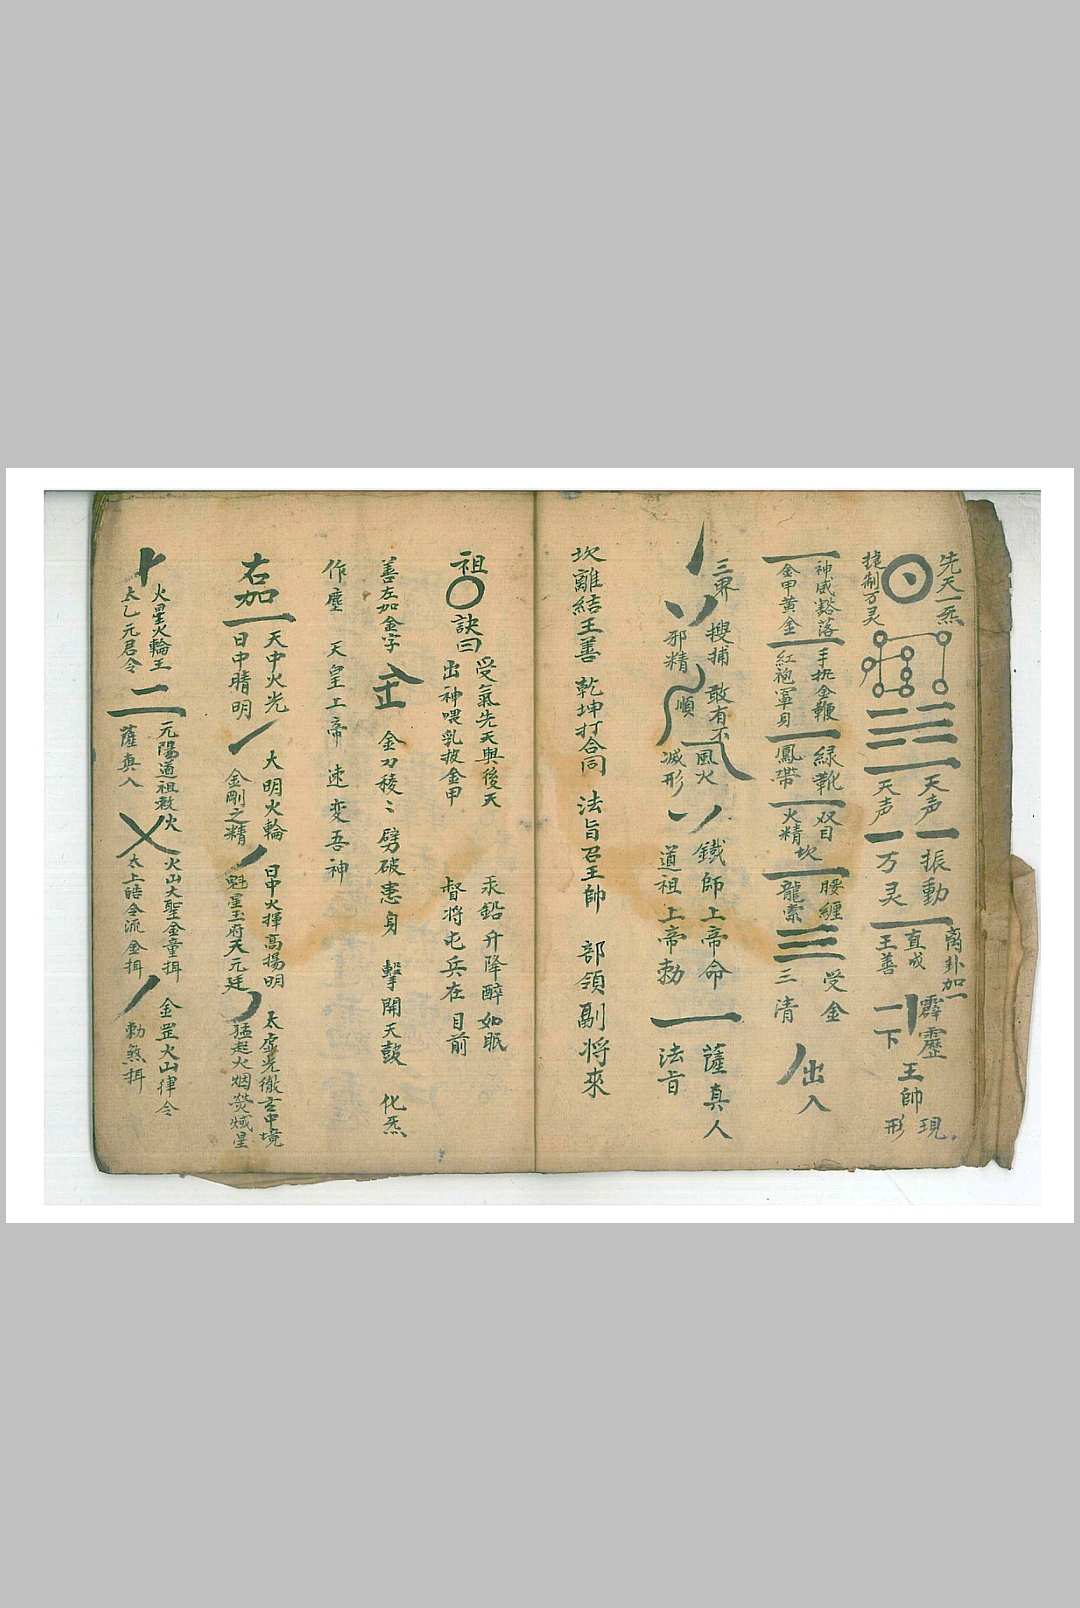 先天一炁
捷制万灵
天声
天声
振動
万灵
離卦加一
直成
王善
霹靂
一下
王帥
現
形
神威豁落
金甲黄金
手执金鞭
紅袍罩身
緑靴
鳳帶
双目
火精
坎
腰纏
龍索
受金
三清
出入
三界
搜捕
邪精
敢有不
順
風火
滅形
鐵師上帝命
道祖上帝勅
薩真人
法旨
坎離結王善 乾坤打合同 法旨召王帥 部領副将來
祖
訣曰
受氣先天與後天 汞鉛升降醉如眠
出神喂乳披金甲 督将屯兵在目前
善左加金字
金刀稜〻 劈破患身 擊開天鼓 化炁
作塵 天皇上帝 速变吾神
右加一
天中火光
日中晴明
大明火輪
金剛之精
日中火揮高揚明
魁罡玉府天元廷
太虚光徹玄中境
猛起火烟熒惑星
十
火星火輪王
太乙元君令
二
元陽道祖教
薩真人
火
火山大聖金童揖
太上語令流金揖
金罡火山律令
勅煞揖